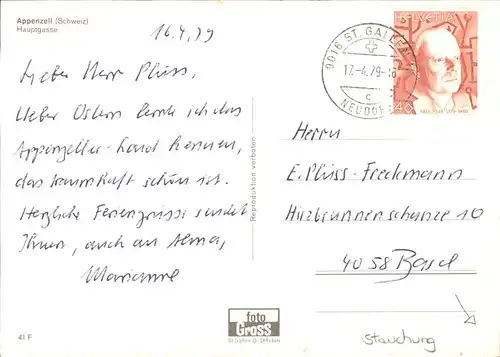 Appenzell (Schweiz)
Hauptgasse
16.4.79
Lieber Herr Plüss,
Ueber Ostern lernte ich das
Appenzeller-Land kennen,
das traumhaft schön ist.
Herzliche Feriengrüsse sendet
Ihnen, auch an Alma,
Marianne
Reproduktion verboten
9016 ST. GALLEN
17.-4.79-18
c
NEUDORF
HELVETIA
40
Herrn
E. Plüss-Freckmann
Hirzbrunnenschanze 10
4058 Basel
foto
Gross
St. Gallen O. St. Fiden
41 F
Stauchung